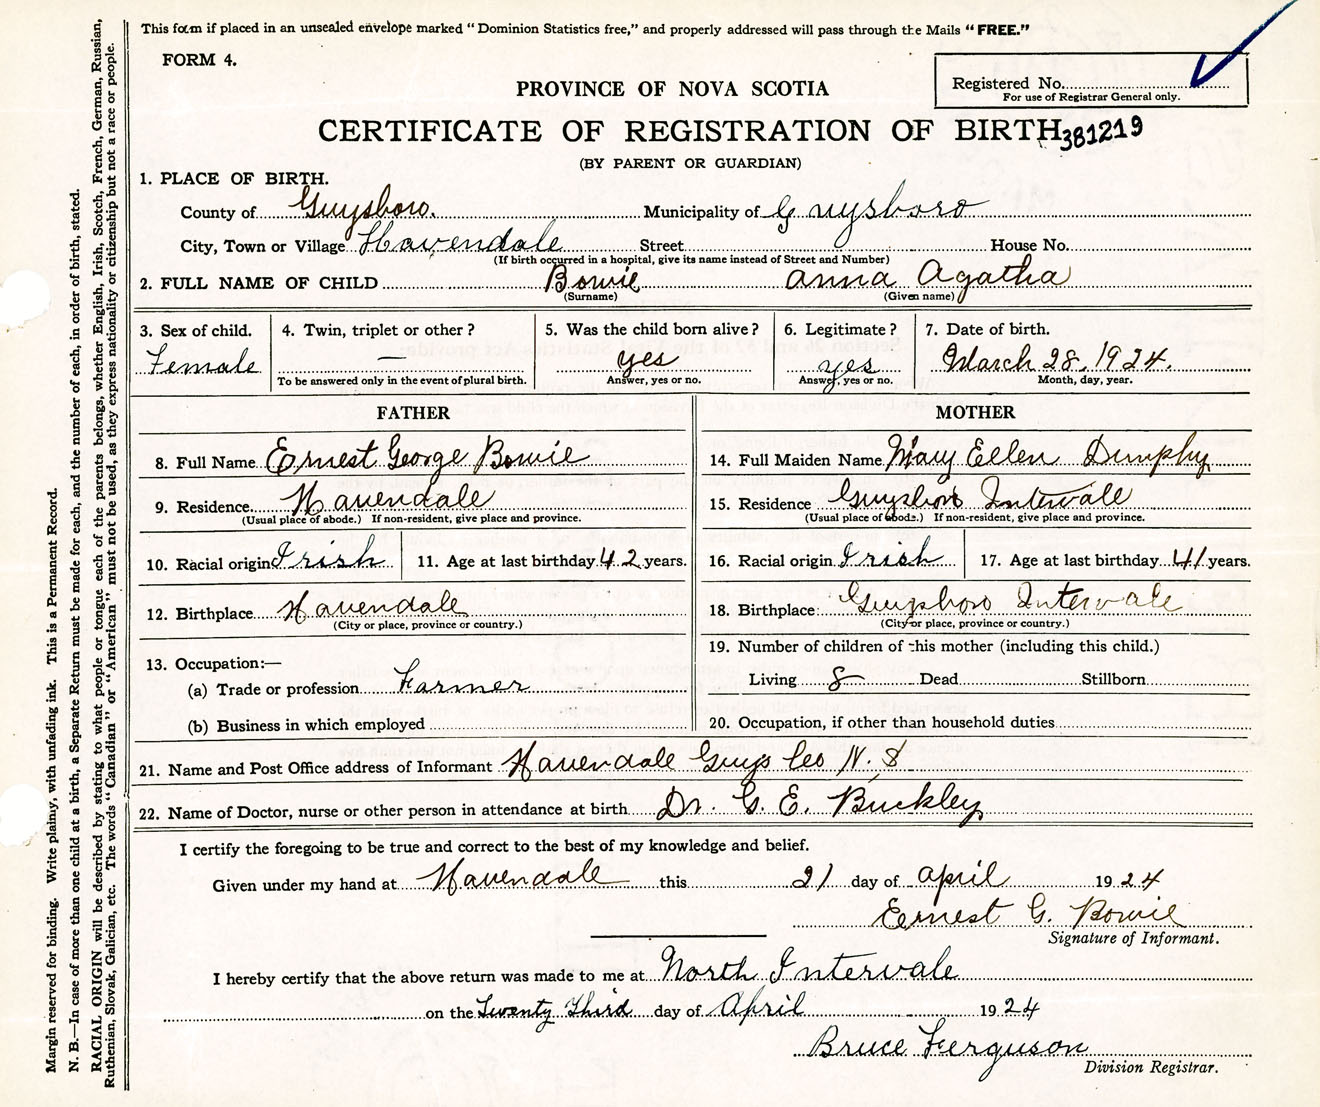 This form if placed in an unsealed envelope marked "Dominion Statistics free," and properly addressed will pass through the Mails "FREE."
FORM 4.
Registered No.
For use of Registrar General only.
PROVINCE OF NOVA SCOTIA
CERTIFICATE OF REGISTRATION OF BIRTH 381219
(BY PARENT OR GUARDIAN)
1. PLACE OF BIRTH.
County of Guysboro. Municipality of Guysboro
City, Town or Village Havendale Street House No.
(If birth occurred in a hospital, give its name instead of Street and Number)
2. FULL NAME OF CHILD Bowie Anna Agatha
(Surname) (Given name)
3. Sex of child. 4. Twin, triplet or other? 5. Was the child born alive? 6. Legitimate? 7. Date of birth.
Female — yes yes March 28, 1924.
To be answered only in the event of plural birth. Answer, yes or no. Answer, yes or no. Month, day, year.
FATHER MOTHER
8. Full Name Ernest George Bowie 14. Full Maiden Name Mary Ellen Dunphy
9. Residence Havendale 15. Residence Guysboro Intervale
(Usual place of abode.) If non-resident, give place and province. (Usual place of abode.) If non-resident, give place and province.
10. Racial origin Irish 11. Age at last birthday 42 years. 16. Racial origin Irish 17. Age at last birthday 41 years.
12. Birthplace Havendale 18. Birthplace: Guysboro Intervale
(City or place, province or country.) (City or place, province or country.)
19. Number of children of this mother (including this child.)
13. Occupation:—
(a) Trade or profession Farmer Living 8 Dead Stillborn
(b) Business in which employed 20. Occupation, if other than household duties
21. Name and Post Office address of Informant Havendale Guys Co N. S
22. Name of Doctor, nurse or other person in attendance at birth Dr. G. E. Buckley
I certify the foregoing to be true and correct to the best of my knowledge and belief.
Given under my hand at Havendale this 21 day of April 1924
Ernest G. Bowie
Signature of Informant.
I hereby certify that the above return was made to me at North Intervale
on the Twenty Third day of April 1924
Bruce Ferguson
Division Registrar.
Margin reserved for binding. Write plainly, with unfading ink. This is a Permanent Record.
N. B.—In case of more than one child at a birth, a Separate Return must be made for each, and the number of each, in order of birth, stated.
RACIAL ORIGIN will be described by stating to what people or tongue each of the parents belongs, whether English, Irish, Scotch, French, German, Russian,
Ruthenian, Slovak, Galician, etc. The words "Canadian" or "American" must not be used, as they express nationality or citizenship but not a race or people.